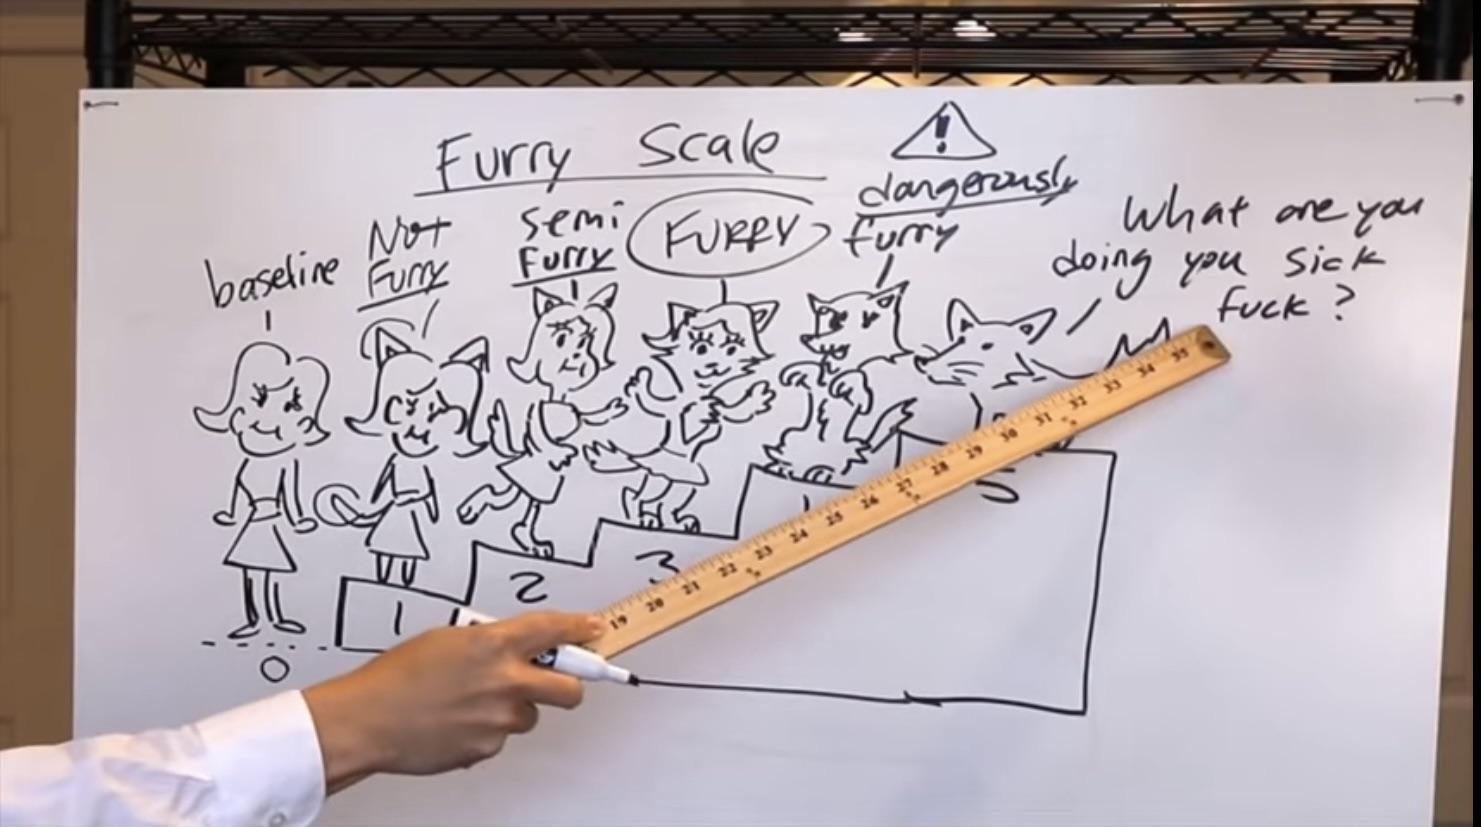 Furry Scale
!
baseline
Not
Furry
semi
Furry
FURRY
dangerously
furry
What are you
doing you sick
fuck?
0
1
2
3
19 20 21 22 23 24 25 26 27 28 29 30 31 32 33 34 35